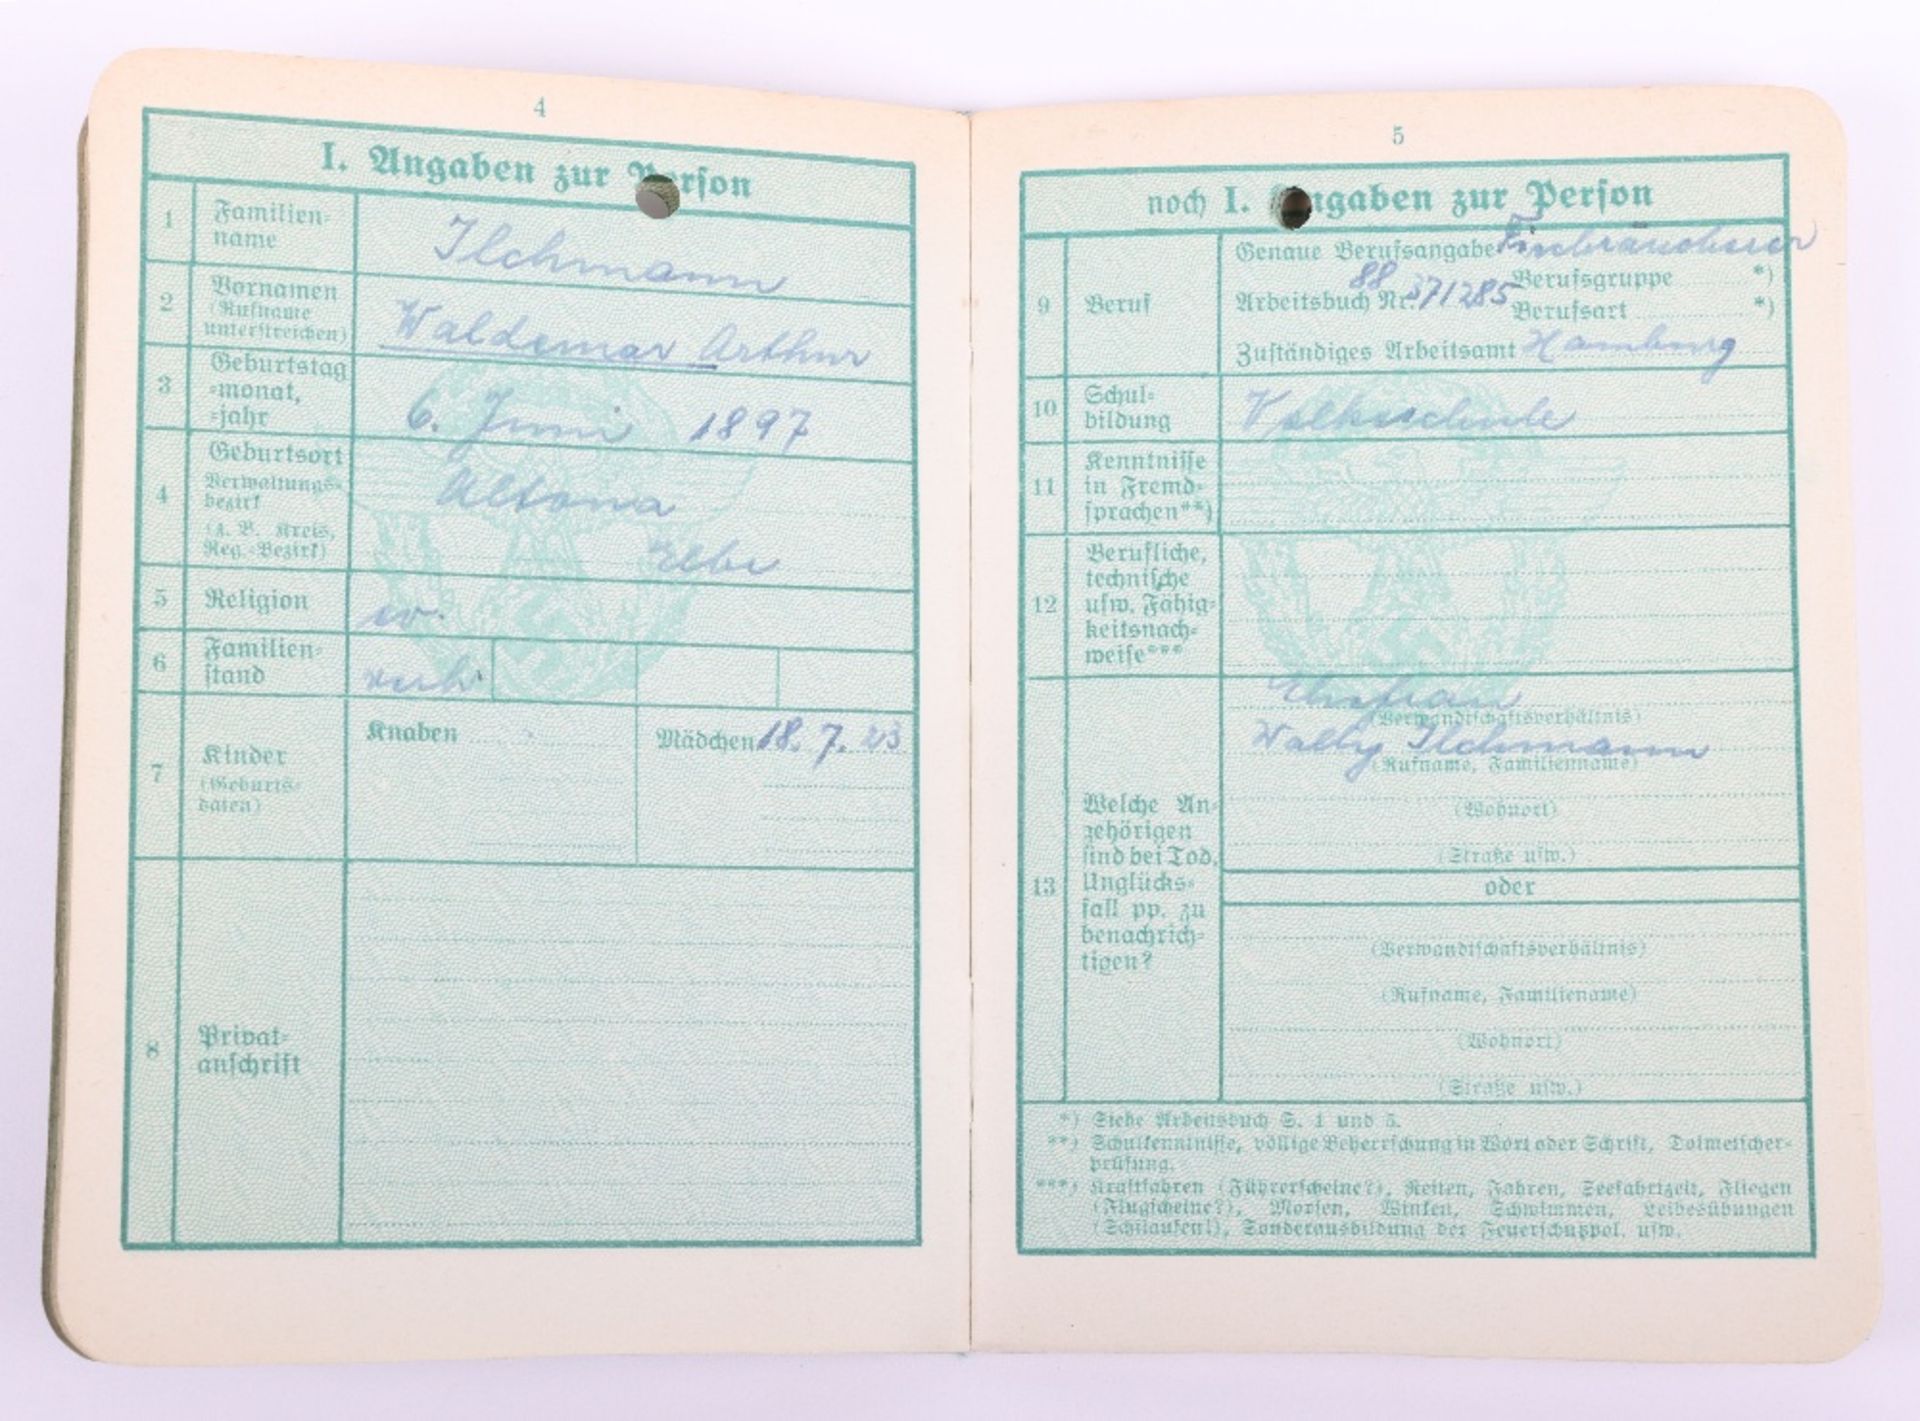 4
I. Angaben zur Person
1
Familien-
name
Ilchmann
2
Vornamen
(Rufname
unterstreichen)
Waldemar Arthur
3
Geburtstag
=monat,
=jahr
6. Juni 1897
4
Geburtsort
Verwaltungs-
bezirk
(z. B. Kreis,
Reg.-Bezirk)
Altona
Elbe
5
Religion
ev.
6
Familien-
stand
verh.
7
Kinder
(Geburts-
daten)
Knaben
Mädchen 18. 7. 23
8
Privat-
anschrift
5
noch I. Angaben zur Person
9
Beruf
Genaue Berufsangabe Fischräucherer
Arbeitsbuch Nr. 88 371285
Berufsgruppe *)
Berufsart *)
Zuständiges Arbeitsamt Hamburg
10
Schul-
bildung
Volksschule
11
Kenntnisse
in Fremd-
sprachen**)
12
Berufliche,
technische
usw. Fähig-
keitsnach-
weise***
13
Welche An-
gehörigen
sind bei Tod,
Unglücks-
fall pp. zu
benachrich-
tigen?
Ehefrau
(Verwandtschaftsverhältnis)
Wally Ilchmann
(Rufname, Familienname)
(Wohnort)
(Straße usw.)
oder
(Verwandtschaftsverhältnis)
(Rufname, Familienname)
(Wohnort)
(Straße usw.)
*) Siehe Arbeitsbuch S. 1 und 5.
**) Schulkenntnisse, völlige Beherrschung in Wort oder Schrift, Dolmetscher-
prüfung.
***) Kraftfahren (Führerscheine?), Reiten, Fahren, Seefahrtzeit, Fliegen
(Flugscheine?), Morsen, Winken, Schwimmen, Leibesübungen
(Schilaufen!), Sonderausbildung der Feuerschutzpol. usw.